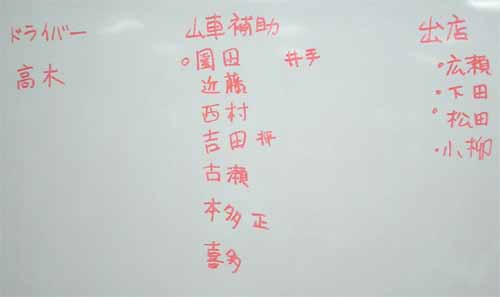 ドライバー
高木
山車補助
○岡田 井手
近藤
西村
吉田 坪
古瀬
本多 正
喜多
出店
・広瀬
・下田
・松田
・小柳